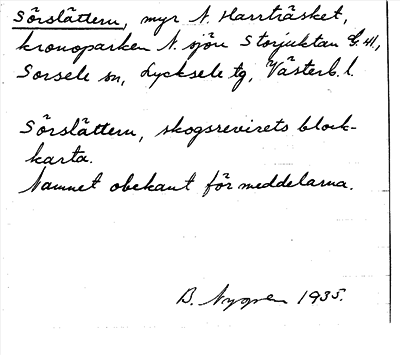 Sörslättern, myr N. Harrträsket,
kronoparken N. sjön Storjuktan
Sorsele sn, Lycksele tg, Västerb. l.
Sörslättern, skogsrevirets block-
karta.
Namnet obekant för meddelarna.
B. Nygren 1935.